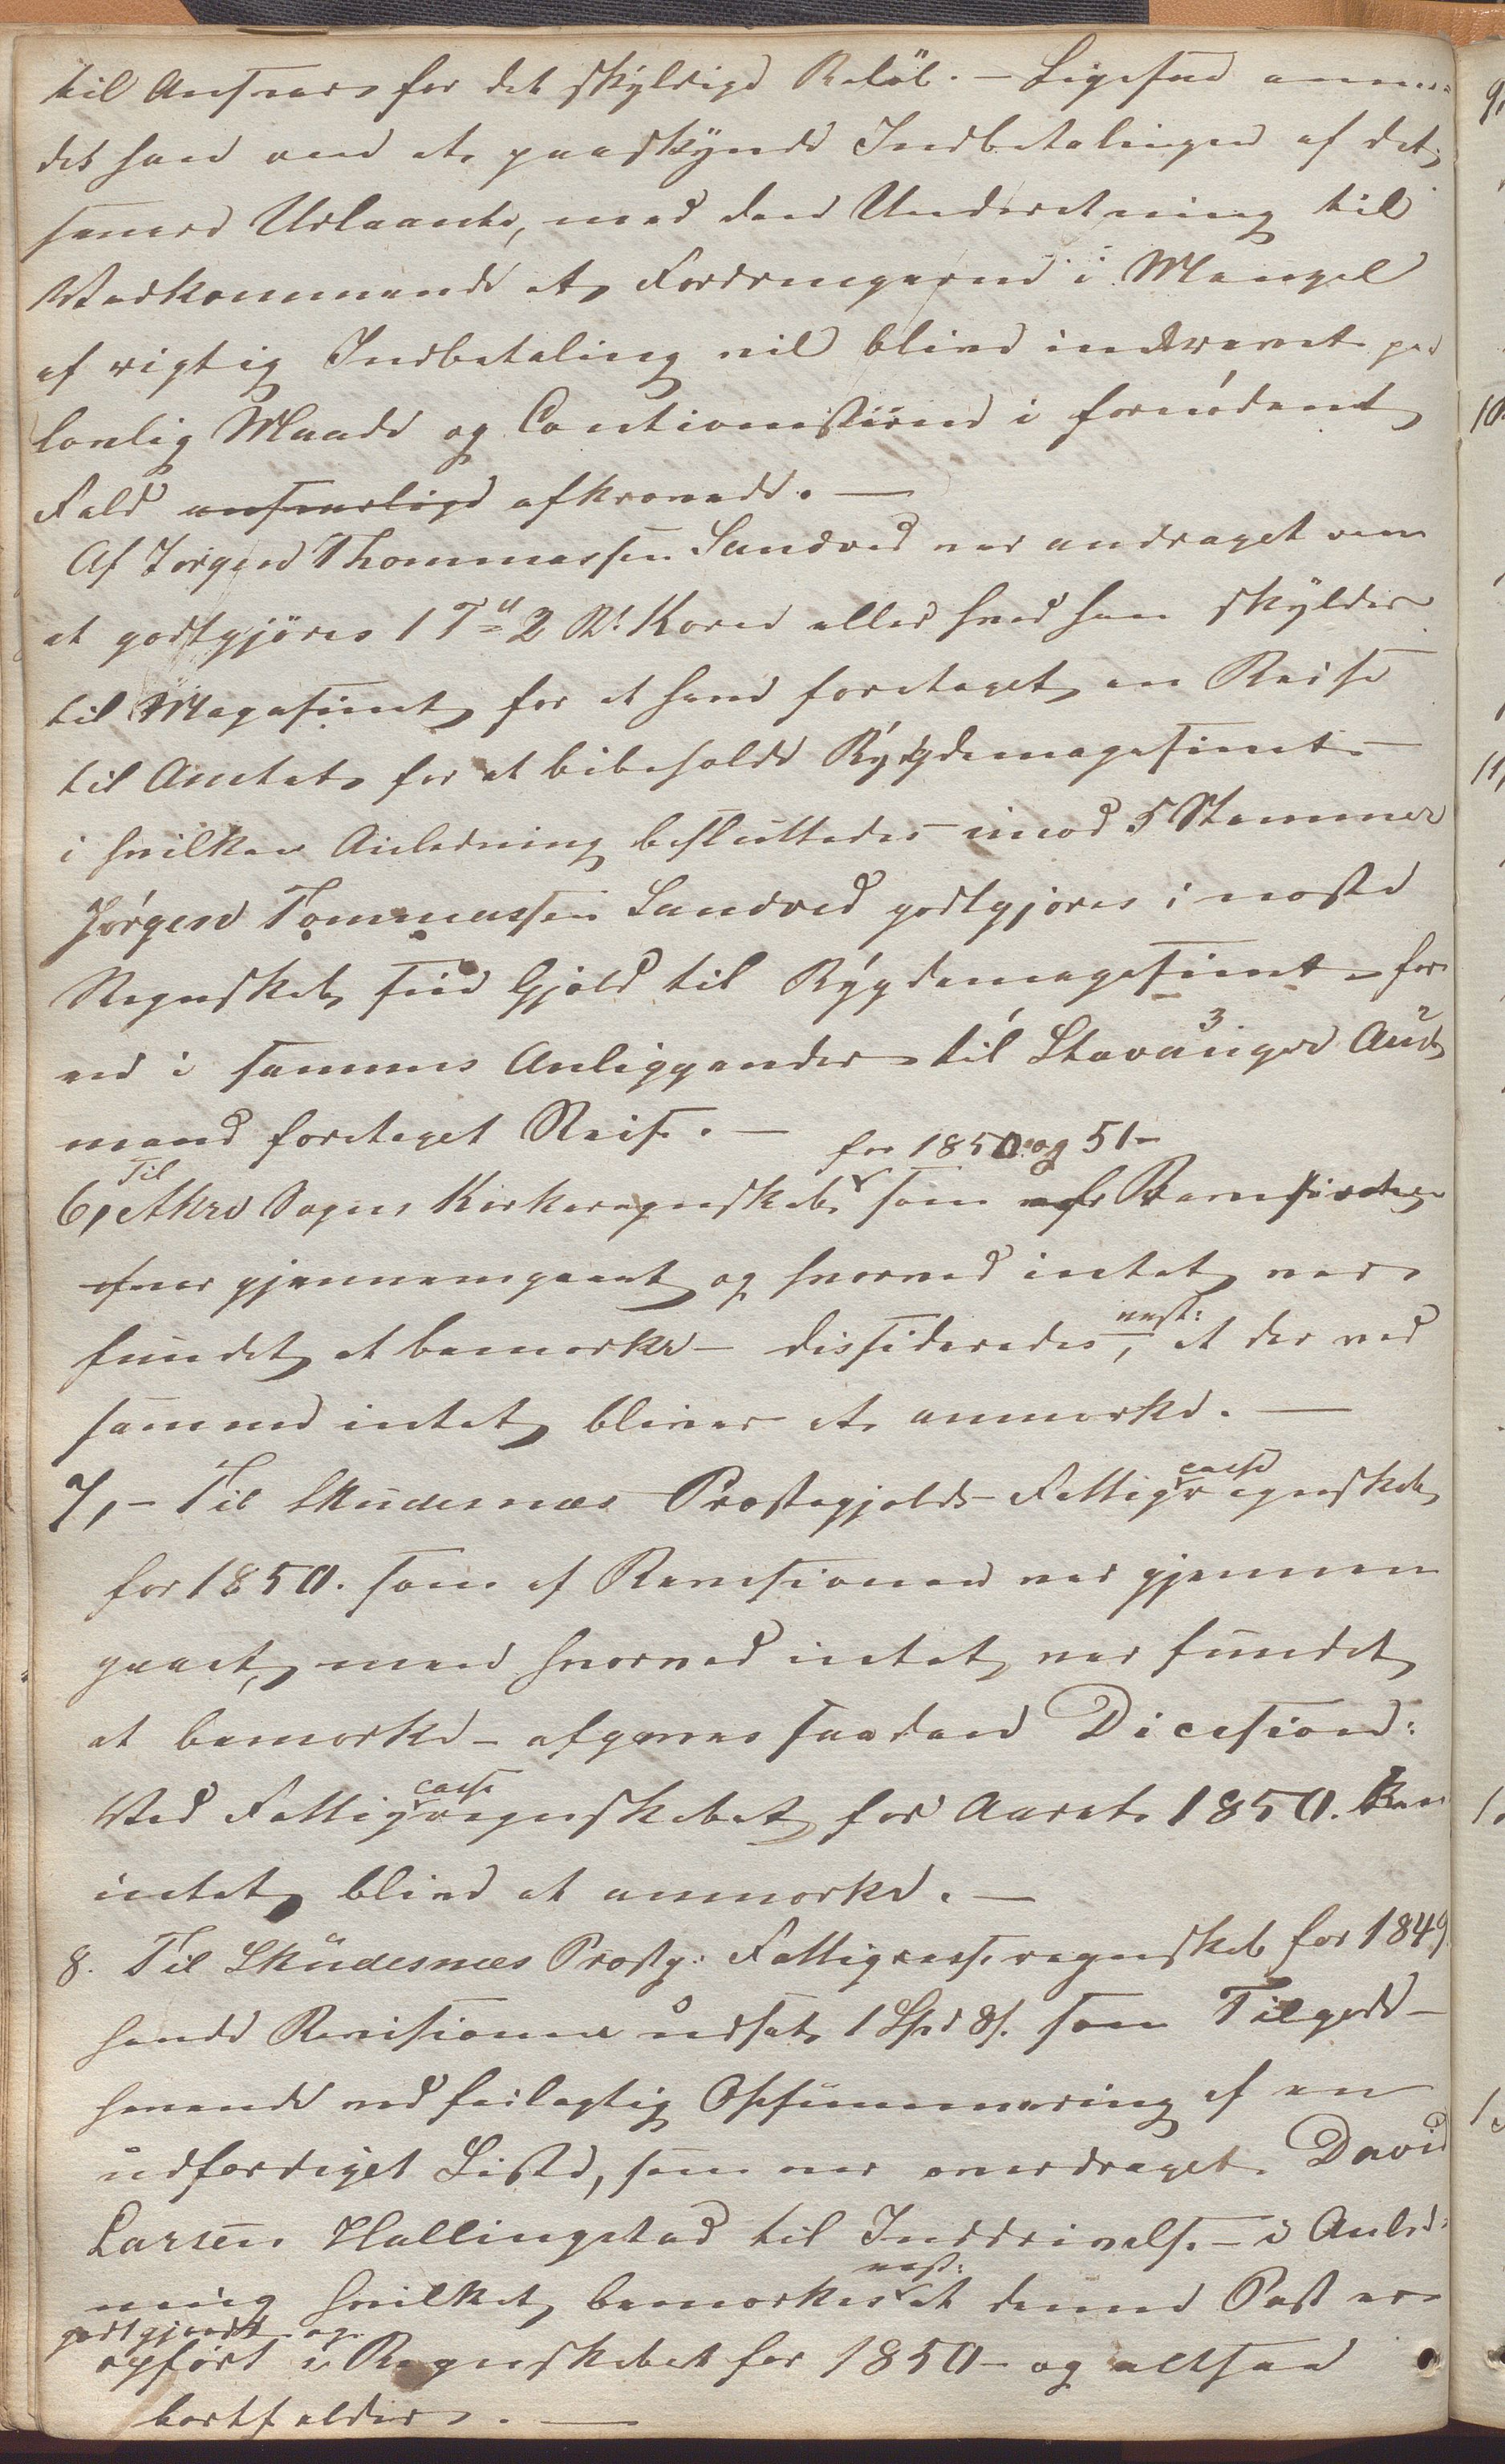 til Ansvar for det skyldige Beløb. – Ligesaa anmo-
des han om at paaskynde Indbetalingen af det
senere Udlaante, med den Underretning til
Vedkommende at Fordringerne i Mangel
af rigtig Indbetaling vil blive inddrevet paa
lovlig Maade og Cautionisterne i fornødent
Fald ansvarlige afkrævede. –
Af Jørgen Thommassen Sandved var andraget om
at godtgjøres 1 Td 2 Korn eller hvad han skylder
til Magasinet for at have foretaget en Reise
til Amtet for at bibeholde Bygdemagasinet
i hvilken Anledning besluttedes imod 5 Stemmer
Jørgen Tommassen Sandved godtgjøres i næste
Regnskab sin Gjæld til Bygdemagasinet – for
en i sammes Anliggender til Stavanger Amt
mand foretaget Reise. –
for 1850 og 51 –
6, Til Akre Sogns Kirkeregnskab som af Revisionen
var gjennemgaaet og hvorved intet var
fundet at bemærke – dessideredes, at der ved
samme intet bliver at anmærke. –
7, – Til Skudesnæs Præstegjelds Fattigcasseregnskab
for 1850. som af Revisionen var gjennem
gaaet, men hvorved intet var fundet
at bemærke – afgaves saadan Dicesion:
Ved Fattigcasseregnskabet for Aaret 1850. kan
intet blive at anmærke. –
8. Til Skudesnæs Præstg: Fattigcasseregnskab for 1849
havde Revisionen udsat 1 Spd 8 s. som Tilgode-
havende ved feilagtig Opsummering af en
udfærdiget Liste, som var overdraget David
Larsen Hallingstad til Inddrivelse – i Anled-
ning hvilket bemærkes at denne Post er
godtgjordt og
opført i Regnskabet for 1850 – og altsaa
bortfalder. –